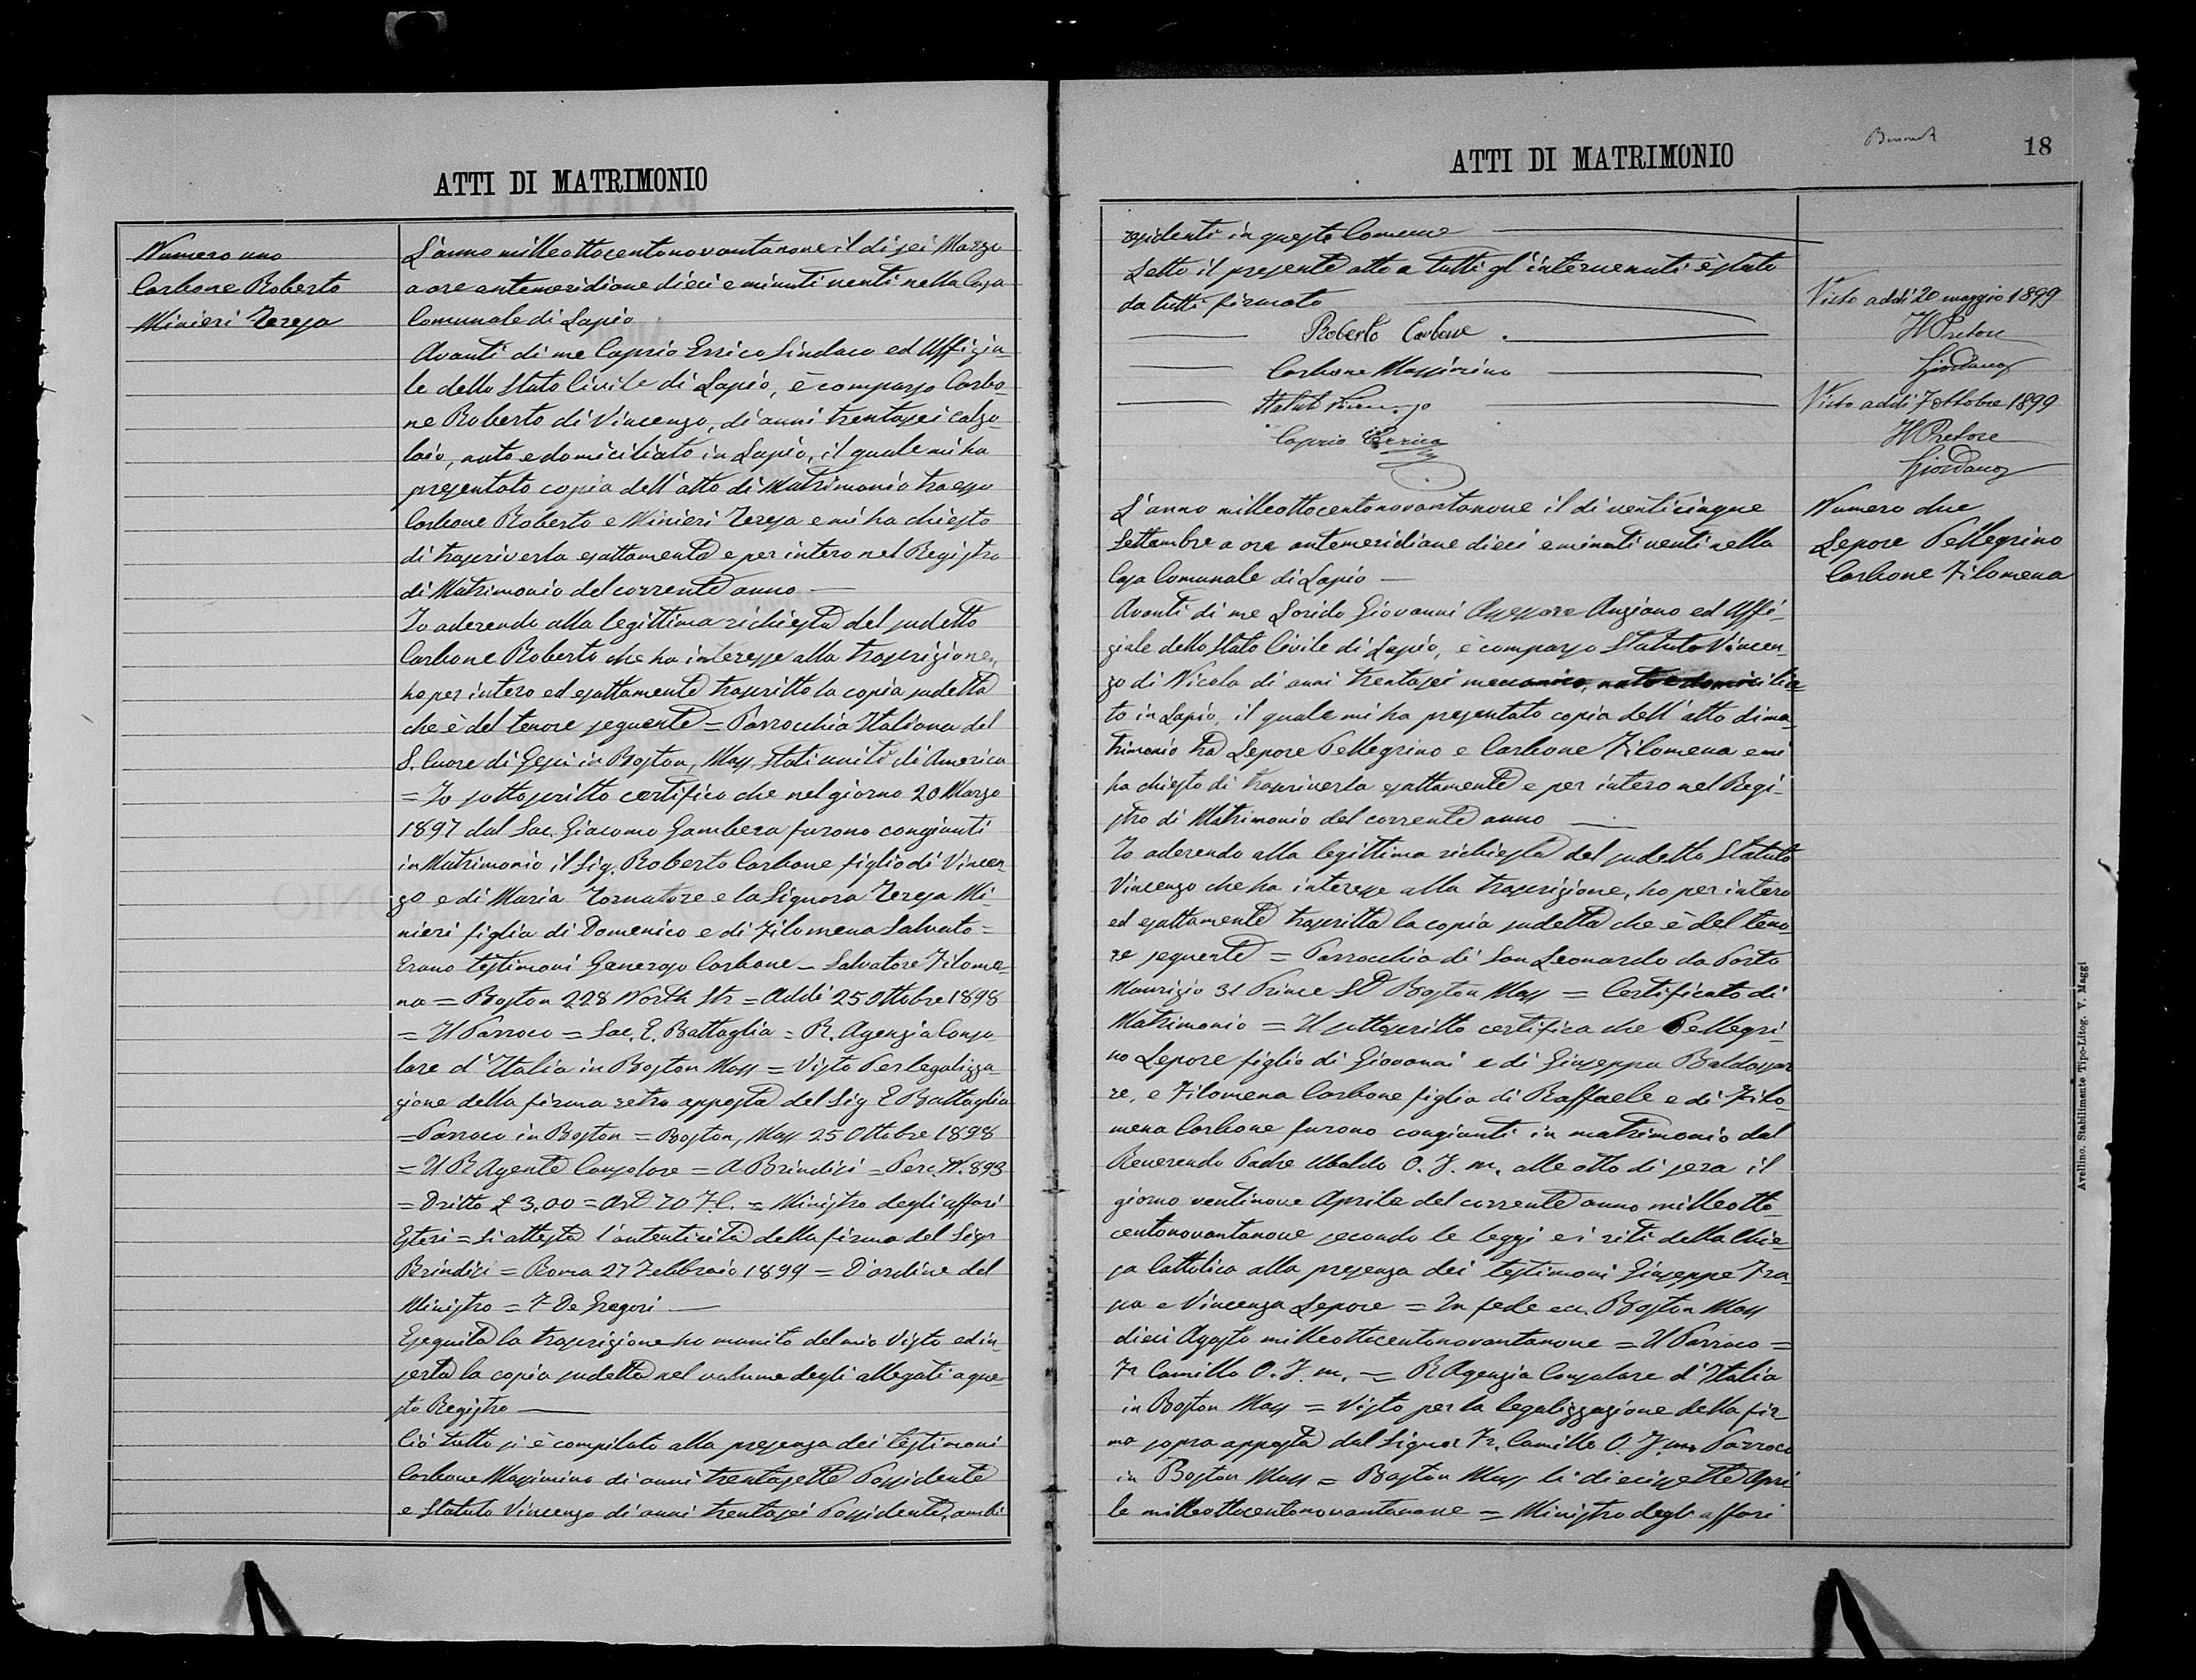 ATTI DI MATRIMONIO
Numero uno
Carbone Roberto
Minieri Teresa
L'anno milleottocentonovantanove il di sei Marzo
a ore antemeridiane dieci e minuti venti nella Casa
Comunale di Lapio
Avanti di me Caprio Errico Sindaco ed Uffizia-
le dello Stato Civile di Lapio, è comparso Carbo-
ne Roberto di Vincenzo, di anni trentasei calzo-
laio, nato e domiciliato in Lapio, il quale mi ha
presentato copia dell'atto di Matrimonio tra esso
Carbone Roberto e Minieri Teresa e mi ha chiesto
di trascriverla esattamente e per intero nel Registro
di Matrimonio del corrente anno —
Io aderendo alla legittima richiesta del sudetto
Carbone Roberto che ha interesse alla trascrizione,
ho per intero ed esattamente trascritto la copia sudetta
che è del tenore seguente = Parrocchia Italiana del
S. Cuore di Gesù in Boston, Mass. Stati uniti di America
= Io sottoscritto certifico che nel giorno 20 Marzo
1897 dal Sac. Giacomo Gambera furono congiunti
in Matrimonio il Sig. Roberto Carbone figlio di Vincen-
zo e di Maria Tornatore e la Signora Teresa Mi-
nieri figlia di Domenico e di Filomena Salvato =
Erano testimoni Generoso Carbone – Salvatore Filome-
na = Boston 228 North Str = Addì 25 Ottobre 1898
= Il Parroco = Sac. E. Battaglia = R. Agenzia Conso
lare d'Italia in Boston Mass = Visto Per legalizza-
zione della firma retro apposta del Sig E Battaglia
= Parroco in Boston = Boston, Mass 25 Ottobre 1898
= Il R Agente Consolare = A Brindisi = Perc. N. 893
= Dritto £ 3,00 = Art 70 T.C. = Ministro degli affari
Esteri = Si attesta l'autenticità della firma del Sigr
Brindisi = Roma 27 Febbraio 1899 = D'ordine del
Ministro = F De Gregori —
Eseguita la trascrizione ho munito del mio Visto ed in-
serta la copia sudetta nel volume degli allegati a que-
sto Registro —
Ciò tutto si è compilato alla presenza dei testimoni
Carbone Massimino di anni trentasette Possidente
e Statuto Vincenzo di anni trentasei Possidente, ambi
ATTI DI MATRIMONIO
18
residenti in questo Comune
Letto il presente atto a tutti gl'intervenuti è stato
da tutti firmato
Roberto Carbone
Carbone Massimino
Statuto Vincenzo
Caprio Errico
Visto addì 20 maggio 1899
Il Pretore
Giordano
Visto addì 7 ottobre 1899
Il Pretore
Giordano
Numero due
Lepore Pellegrino
Carbone Filomena
L'anno milleottocentonovantanove il di venticinque
Settembre a ore antemeridiane dieci e minuti venti nella
Casa Comunale di Lapio —
Avanti di me Lorido Giovanni Assessore Anziano ed Uffi-
ziale dello Stato Civile di Lapio, è comparso Statuto Vincen-
zo di Nicola di anni trentasei meccanico, nato e domicilia
to in Lapio, il quale mi ha presentato copia dell'atto di ma-
trimonio tra Lepore Pellegrino e Carbone Filomena e mi
ha chiesto di trascriverla esattamente e per intero nel Regi-
stro di Matrimonio del corrente anno —
Io aderendo alla legittima richiesta del sudetto Statuto
Vincenzo che ha interesse alla trascrizione, ho per intero
ed esattamente trascritta la copia sudetta che è del teno-
re seguente = Parrocchia di San Leonardo da Porto
Maurizio 31 Prince St Boston Mass = Certificato di
Matrimonio = Il sottoscritto certifica che Pellegri-
no Lepore figlio di Giovanni e di Giuseppa Baldassar
re, e Filomena Carbone figlia di Raffaele e di Filo-
mena Carbone furono congiunti in matrimonio dal
Reverendo Padre Ubaldo O. F. M. alle otto di sera il
giorno ventinove Aprile del corrente anno milleotto-
centonovantanove secondo le leggi e i riti della Chie-
sa Cattolica alla presenza dei testimoni Giuseppe Tra-
sa e Vincenza Lepore = In fede ecc. Boston Mass
dieci Agosto milleottocentonovantanove = Il Parroco =
Fr Camillo O. F. m. = R Agenzia Consolare d'Italia
in Boston Mass = Visto per la legalizzazione della fir
ma sopra apposta dal Signor Fr. Camillo O. F. m Parroco
in Boston Mass = Boston Mass li diecissette Apri
le milleottocentonovantanove = Ministro degli affari
Avellino. Stabilimento Tipo-Litog. V. Maggi